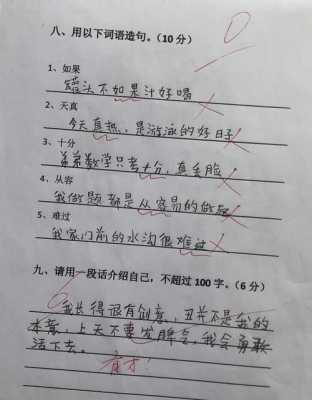 八、用以下词语造句。(10分)
0
1、如果
罐头不如果汁好喝
2、天真
今天真热,是游泳的好日子
3、十分
弟弟数学只考十分,真丢脸
4、从容
我做题都是从容易的做起
5、难过
我家门前的水沟很难过
九、请用一段话介绍自己,不超过100字。(6分)
6
我长得很有创意,丑并不是我的
本意,上天不要发脾气,我会勇敢
活下去。
有才!